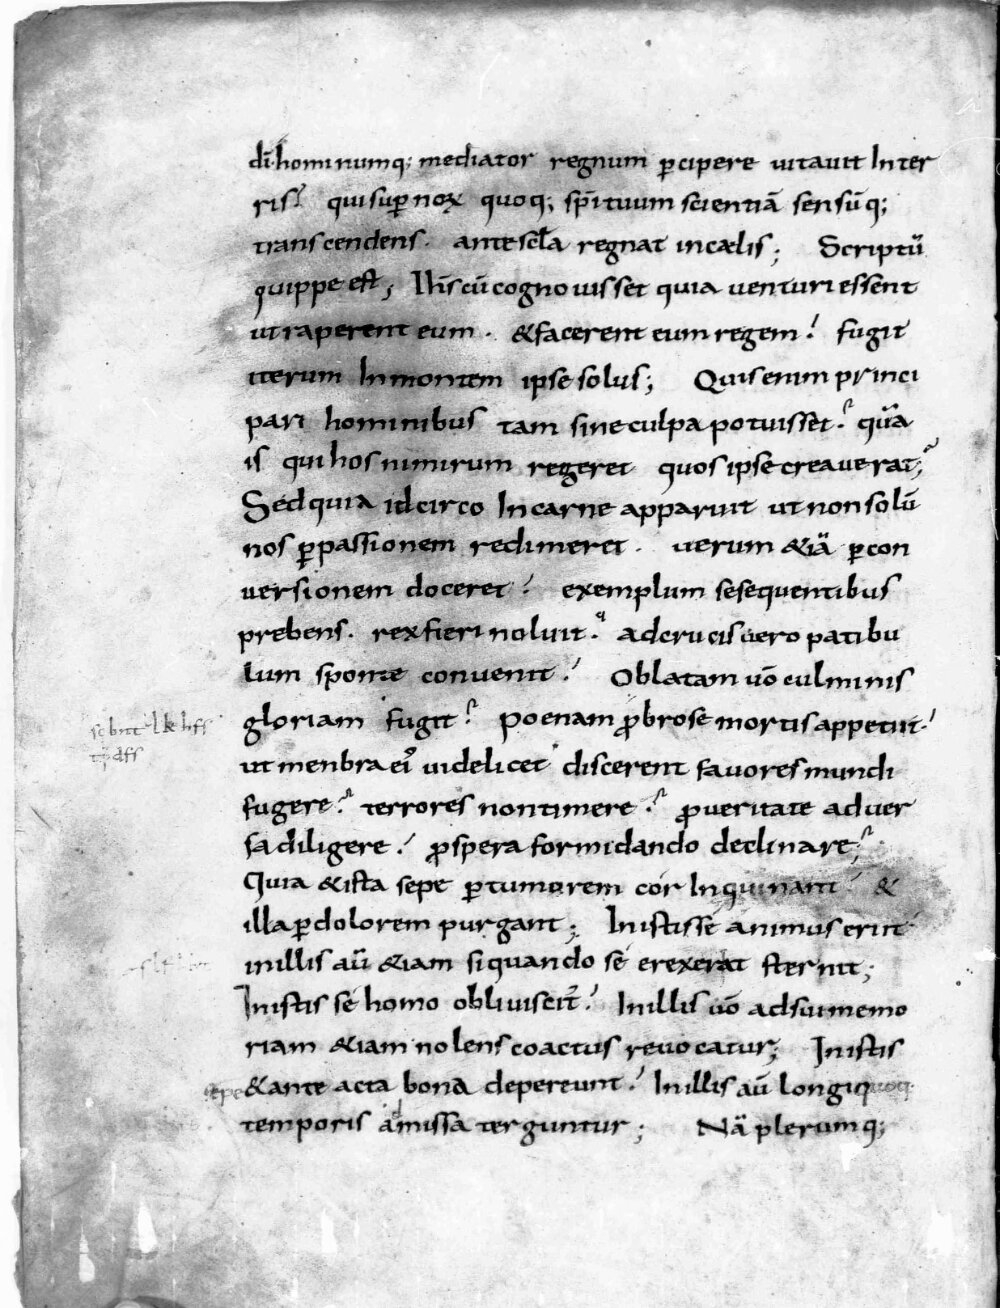 dī hominumq; mediator regnum ꝑcipere uitauit Inter
ris? qui suꝑnoꝝ quoq; sp̄ituum scientiā sensūq;
transcendens. ante scl̄a regnat in cælis; Scriptū
quippe est; Ih̄s cū cognouisset quia uenturi essent
ut raperent eum. & facerent eum regem? fugit
iterum In montem ipse solus; Quis enim princi
pari hominibus tam sine culpa potuisset? quā
is qui hos nimirum regeret quos ipse creauerat;
Sed quia idcirco In carne apparuit ut non solū
nos ꝑ passionem redimeret. uerum &iā ꝑ con
uersionem doceret? exemplum se sequentibus
prebens. rex fieri noluit. ad crucis uero patibu
lum sponte conuenit? Oblatam uō culminis
gloriam fugit? poenam ꝓbrose mortis appetiit?
ut menbra ei᾽ uidelicet discerent fauores mundi
fugere? terrores non timere? ꝓ ueritate aduer
sa diligere? ꝓspera formidando declinare;
Quia & ista sepe ꝑ tumorem cor Inquinant? &
illa ꝑ dolorem purgant; In istis se animus erigit
in illis aū &iam si quando se erexerat sternit;
In istis se homo obliuiscit̄? In illis uō ad sui memo
riam &iam nolens coactus reuocatur; In istis
sepe & ante acta bona depereunt? In illis aū longiquoq.
temporis admissa terguntur; Nā plerumq;